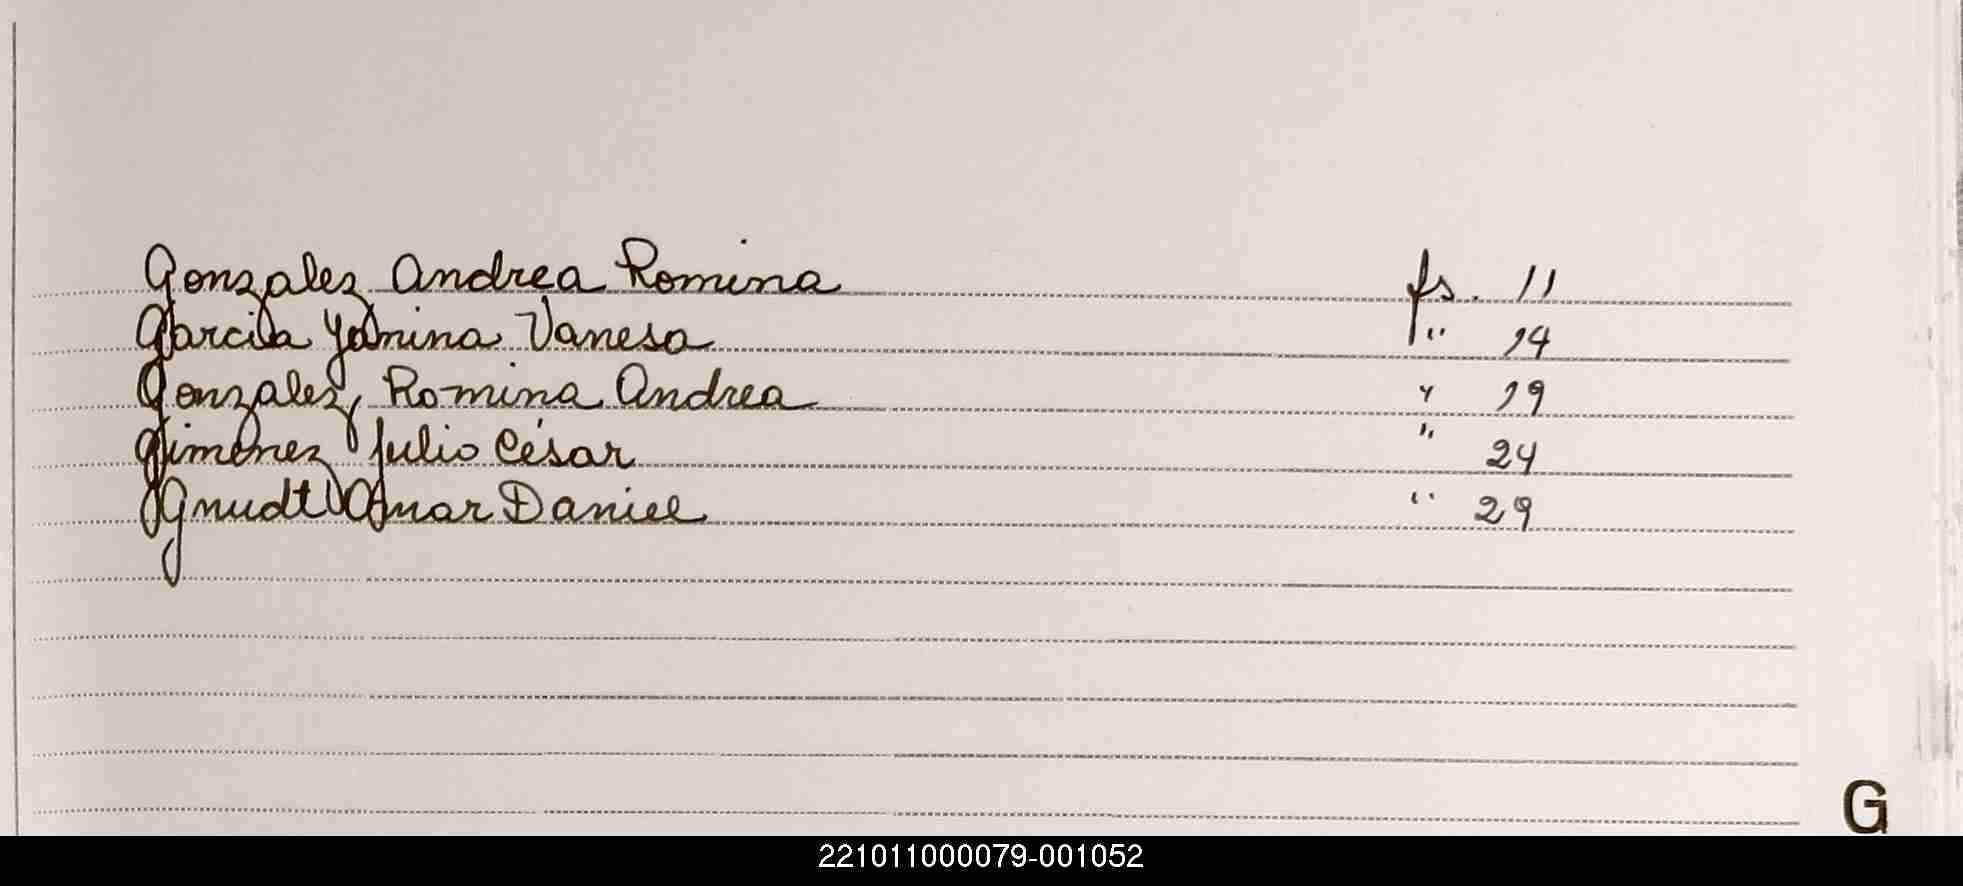 Gonzalez Andrea Romina fs. 11
Garcia Yanina Vanesa " 14
Gonzalez, Romina Andrea " 19
Gimenez Julio César " 24
Omar Daniel " 29
G
221011000079-001052